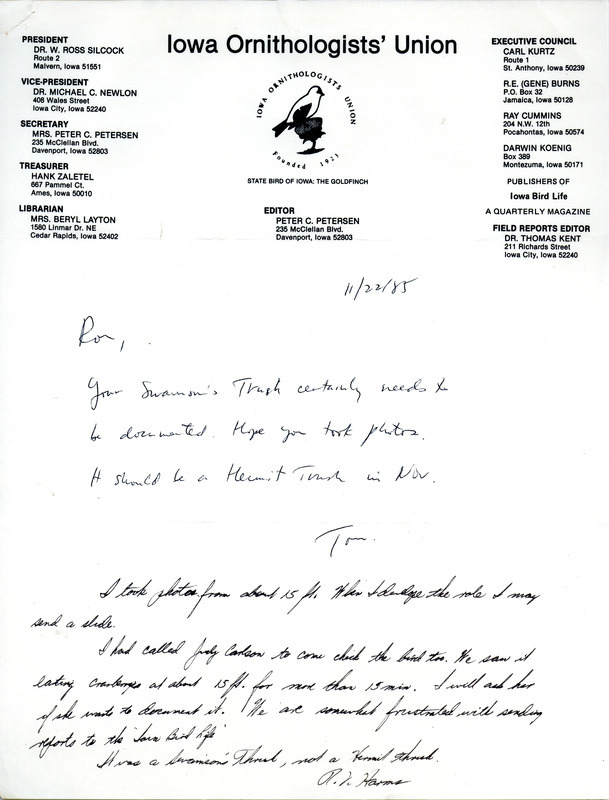 Iowa Ornithologists' Union
PRESIDENT
DR. W. ROSS SILCOCK
Route 2
Malvern, Iowa 51551
VICE-PRESIDENT
DR. MICHAEL C. NEWLON
408 Wales Street
Iowa City, Iowa 52240
SECRETARY
MRS. PETER C. PETERSEN
235 McClellan Blvd.
Davenport, Iowa 52803
TREASURER
HANK ZALETEL
667 Pammel Ct.
Ames, Iowa 50010
LIBRARIAN
MRS. BERYL LAYTON
1580 Linmar Dr. NE
Cedar Rapids, Iowa 52402
IOWA ORNITHOLOGISTS UNION
Founded 1923
STATE BIRD OF IOWA: THE GOLDFINCH
EDITOR
PETER C. PETERSEN
235 McClellan Blvd.
Davenport, Iowa 52803
EXECUTIVE COUNCIL
CARL KURTZ
Route 1
St. Anthony, Iowa 50239
R.E. (GENE) BURNS
P.O. Box 32
Jamaica, Iowa 50128
RAY CUMMINS
204 N.W. 12th
Pocahontas, Iowa 50574
DARWIN KOENIG
Box 389
Montezuma, Iowa 50171
PUBLISHERS OF
Iowa Bird Life
A QUARTERLY MAGAZINE
FIELD REPORTS EDITOR
DR. THOMAS KENT
211 Richards Street
Iowa City, Iowa 52240
11/22/85
Ron,
Your Swainson's Thrush certainly needs to
be documented. Hope you took photos.
It should be a Hermit Thrush in Nov.
Tom.
I took photos from about 15 ft. When I develope the role I may
send a slide.
I had called Judy Carlson to come check the bird too. We saw it
eating at about 15 ft. for more than 15 min. I will ask her
if she wants to document it. We are somewhat frustrated with sending
reports to the "Iowa Bird Life"
It was a Swainson's Thrush, not a Hermit thrush.
R. Harms